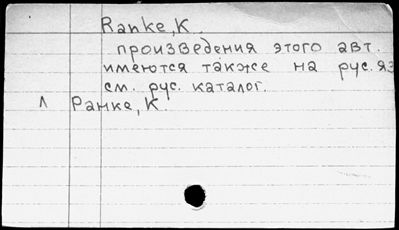 Ranke, K.
произведения этого авт.
имеются также на рус. яз
см. рус. каталог.
Λ Ранке, К.